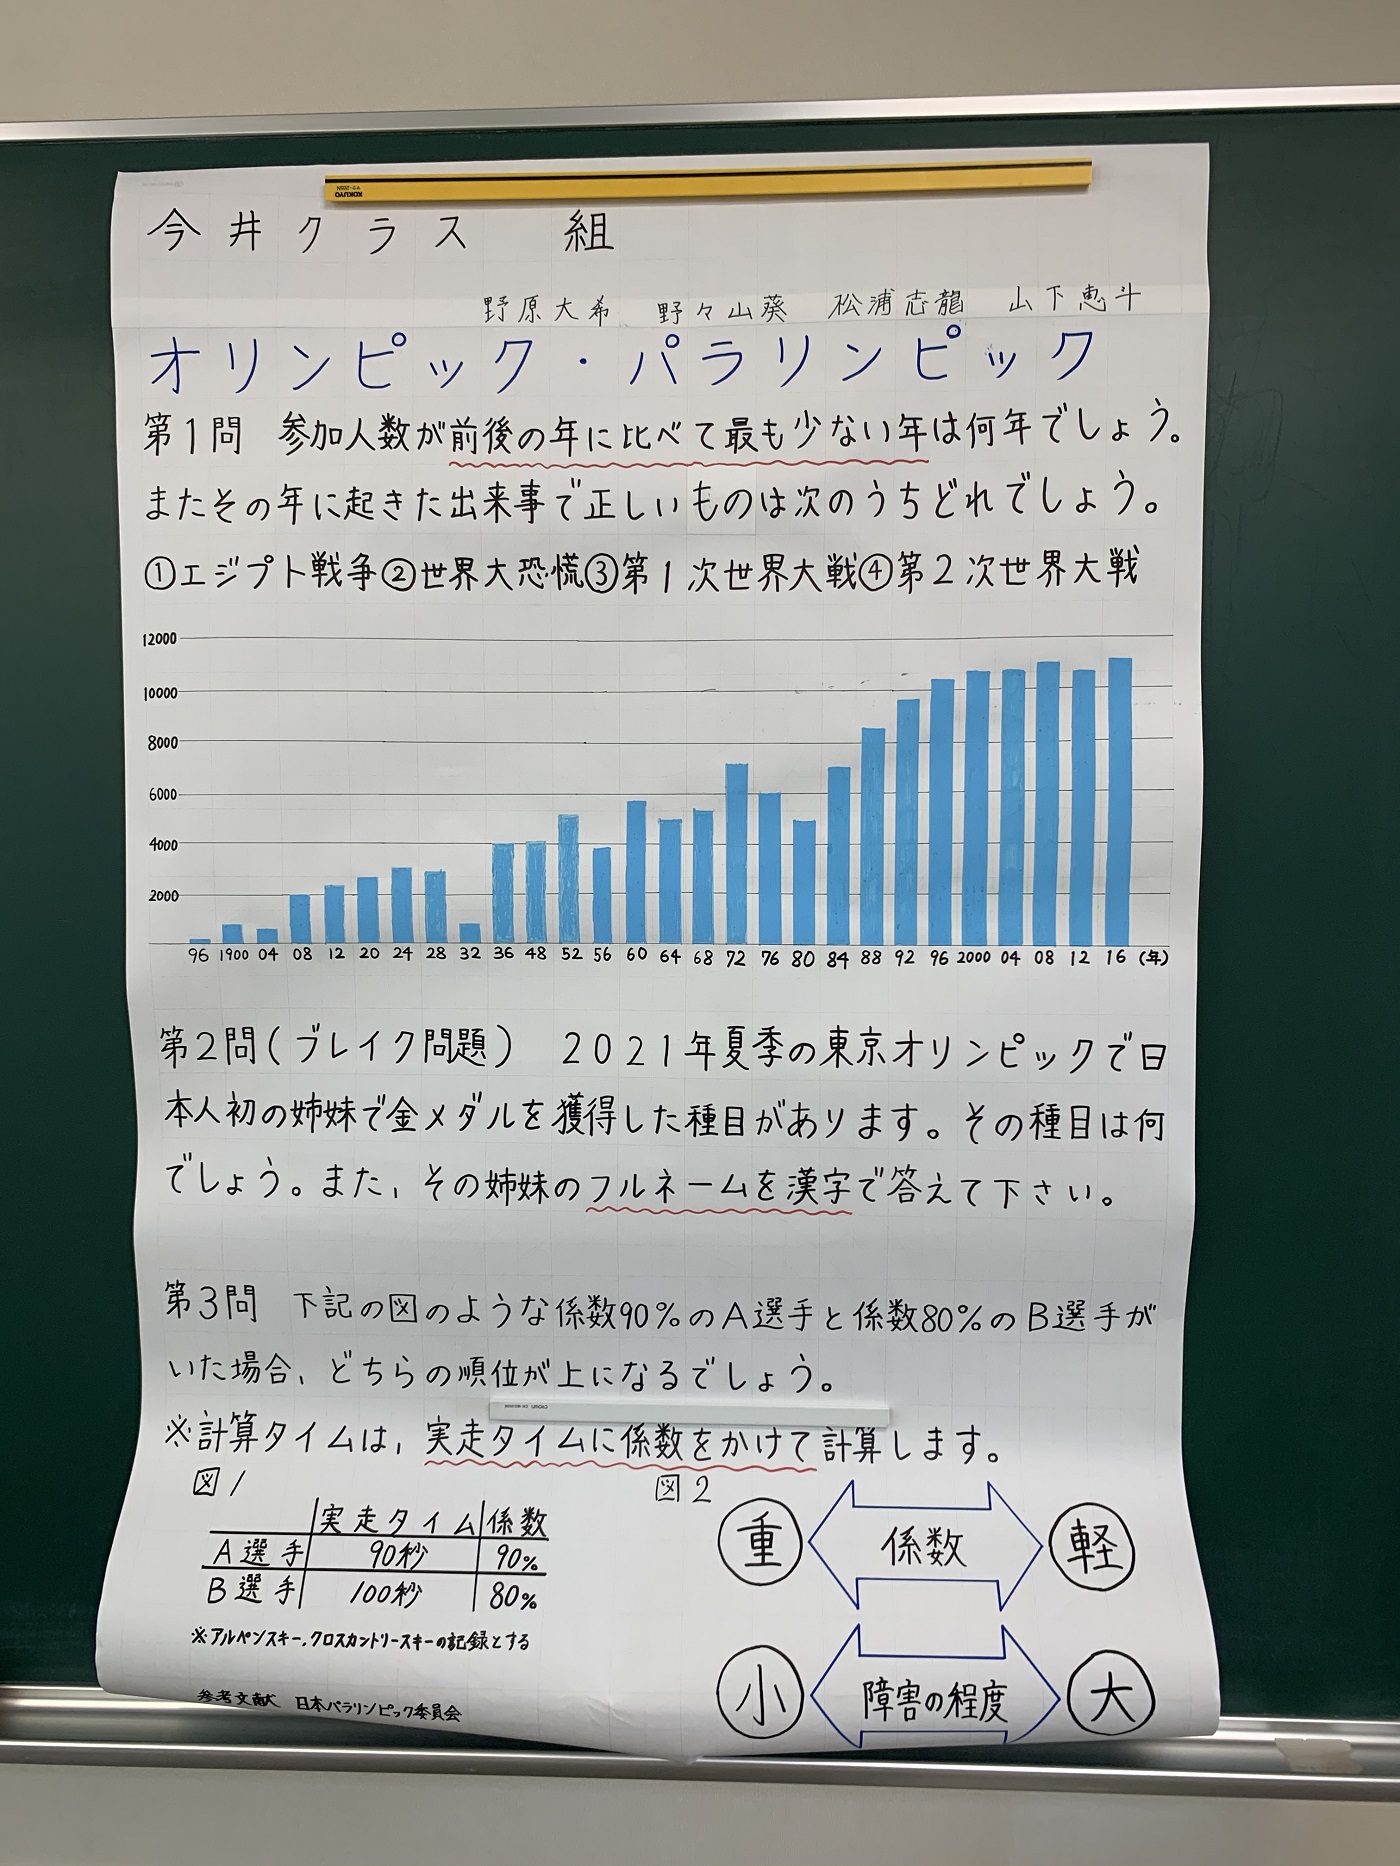 今井クラス 組
野原大希 野々山葵 松浦志龍 山下恵斗
オリンピック・パラリンピック
第1問 参加人数が前後の年に比べて最も少ない年は何年でしょう。
またその年に起きた出来事で正しいものは次のうちどれでしょう。
①エジプト戦争②世界大恐慌③第1次世界大戦④第2次世界大戦
12000
10000
8000
6000
4000
2000
96 1900 04 08 12 20 24 28 32 36 48 52 56 60 64 68 72 76 80 84 88 92 96 2000 04 08 12 16 (年)
第2問(ブレイク問題) 2021年夏季の東京オリンピックで日
本人初の姉妹で金メダルを獲得した種目があります。その種目は何
でしょう。また、その姉妹のフルネームを漢字で答えて下さい。
第3問 下記の図のような係数90%のA選手と係数80%のB選手が
いた場合、どちらの順位が上になるでしょう。
※計算タイムは、実走タイムに係数をかけて計算します。
図1
実走タイム 係数
A選手 90秒 90%
B選手 100秒 80%
※アルペンスキー、クロスカントリースキーの記録とする
参考文献 日本パラリンピック委員会
図2
重 係数 軽
小 障害の程度 大
KOKUYO